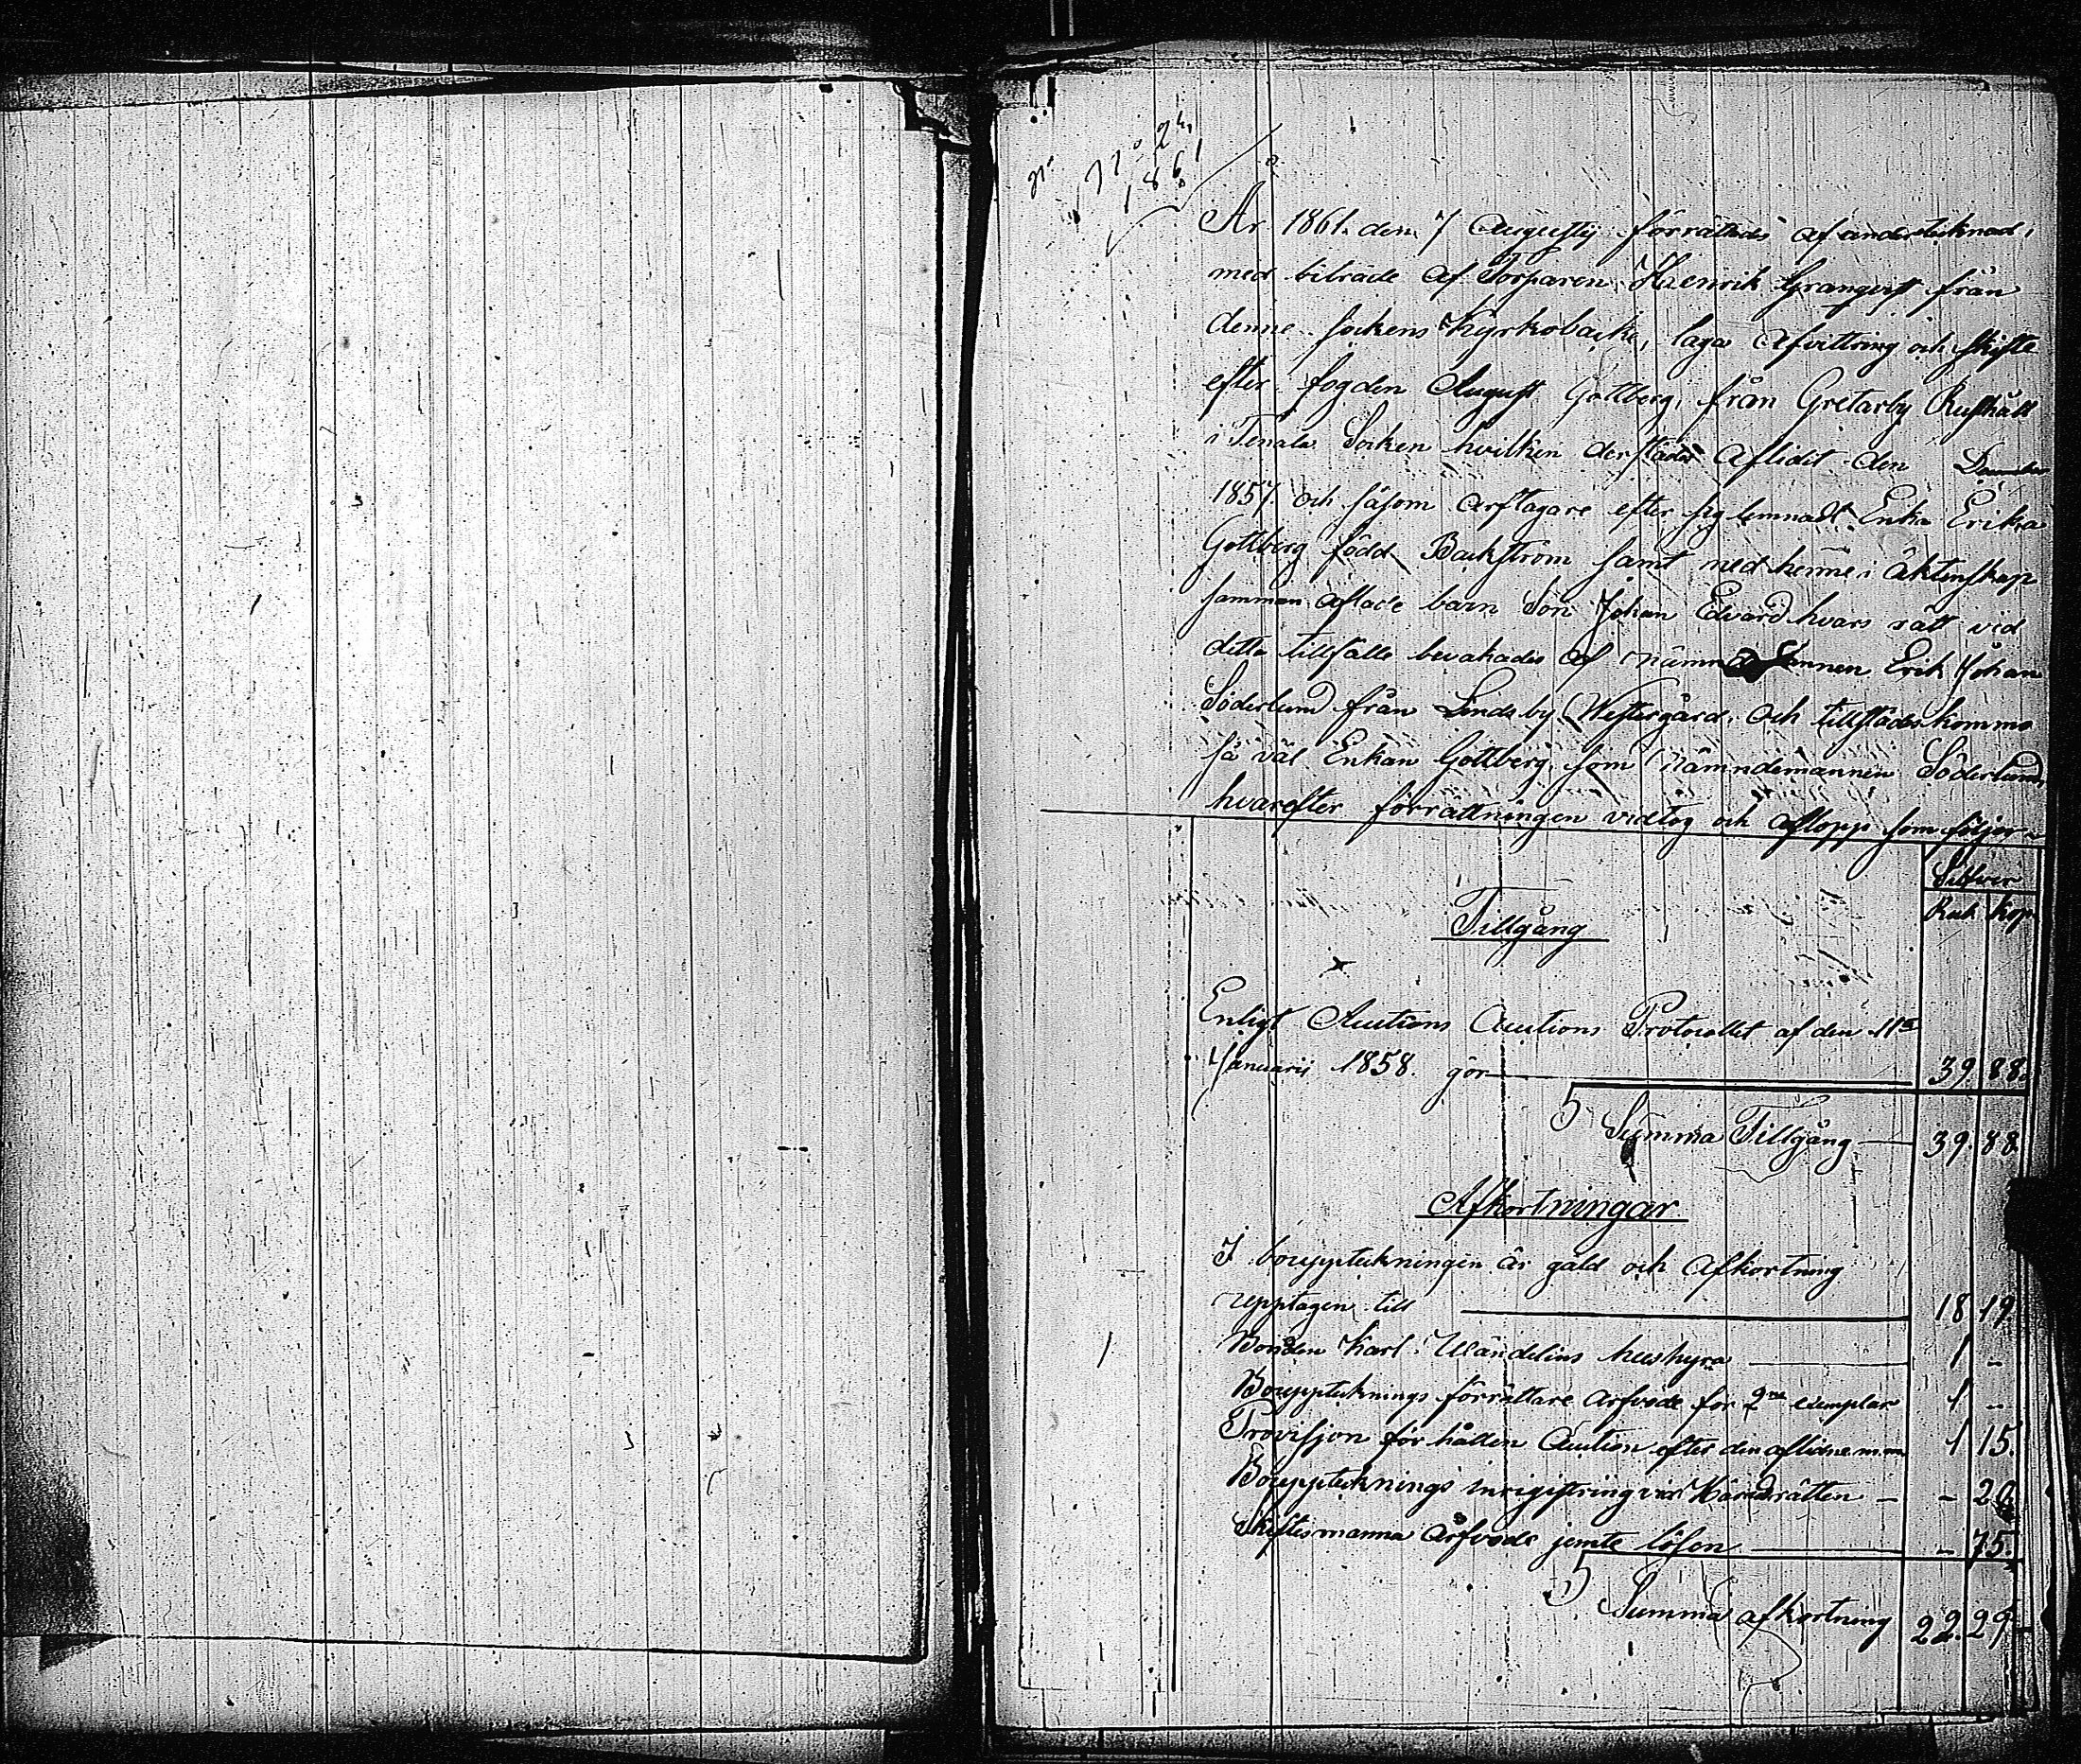 N:o 24
1861
År 1861. den 7 Augustij förrättades af undertecknad,
med biträde af Torparen Henrik Granqvist från
denne sockens Kyrkobacke, laga Afvittring och skifte
efter fogden August Gottberg, från Gretarby Rusthåll
i Tenala Socken hvilken derstädes aflidit den December
1857 och såsom arftagare efter sig lemnadt Enka Erika
Gottberg född Backström samt med henne i äktenskap
samman aflade barn Son Johan Edvard hvars rätt vid
detta tillfälle bevakades af nämndemannen Erik Johan
Söderlund från Lindsby Westergård. Och tillstädeskommo
så väl Enkan Gottberg som nämndemannen Söderlund,
hvarefter förrättningen vidtog och aflopp som följer
Silfver
Rub. Kop.
Tillgång
Enligt Auctions Auctions Protocollet af den 11te
Januarii 1858. gör 39 88.
Summa Tillgång 39. 88.
Afkortningar
I bouppteckningen är gäld och Afkortning
upptagen till 18 19
Bonden Karl Wändelius hushyra 1 -
Bouppteknings förrättare arfvode för 2ne exemplar 1 -
Provisjon för hållen Auction efter den aflidne m.m 1 15.
Bouppteknings inregistring vid Häradsrätten - - 20
Skiftesmanna Arfvode jemte lösen - 75.
Summa afkortning 22. 29